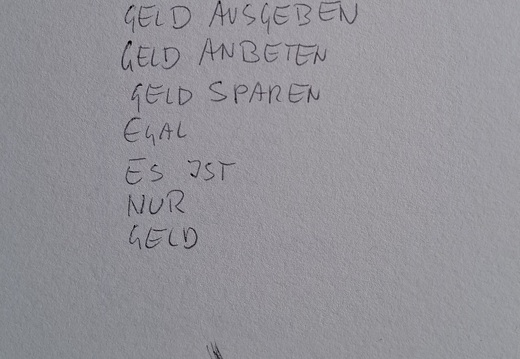 GELD AUSGEBEN
GELD ANBETEN
GELD SPAREN
EGAL
ES IST
NUR
GELD